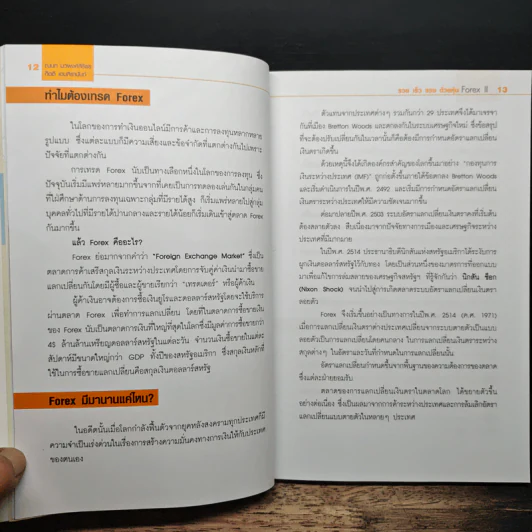 12
ทำไมต้องเทรด Forex
ในโลกของการทำเงินออนไลน์มีการค้าและการลงทุนหลากหลาย
รูปแบบ ซึ่งแต่ละแบบก็มีความเสี่ยงและข้อจำกัดที่แตกต่างกันไปเพราะ
ปัจจัยที่แตกต่างกัน
การเทรด Forex นับเป็นทางเลือกหนึ่งในโลกของการลงทุน ซึ่ง
ปัจจุบันเริ่มมีแพร่หลายมากขึ้นจากที่เคยเป็นการทดลองเล่นกันในกลุ่มคน
ที่ไม่ศึกษาด้านการลงทุนเฉพาะกลุ่มที่มีรายได้สูง ก็เริ่มแพร่หลายไปสู่กลุ่ม
บุคคลทั่วไปที่มีรายได้ปานกลางและรายได้น้อยก็เริ่มเดินเข้าสู่ตลาด Forex
กันมากขึ้น
แล้ว Forex คืออะไร?
Forex ย่อมาจากคำว่า "Foreign Exchange Market" ซึ่งเป็น
ตลาดการค้าเสรีสกุลเงินระหว่างประเทศโดยการจับคู่ค่าเงินนำมาซื้อขาย
แลกเปลี่ยนกันโดยมีผู้ซื้อและผู้ขายเรียกว่า "เทรดเดอร์" หรือผู้ค้าเงิน
ผู้ค้าเงินอาจต้องการซื้อเงินยูโรและดอลลาร์สหรัฐโดยจะใช้บริการ
ผ่านตลาด Forex เพื่อทำการแลกเปลี่ยน โดยที่ในตลาดการซื้อขายเงิน
ของ Forex นับเป็นตลาดการเงินที่ใหญ่ที่สุดในโลกซึ่งมีมูลค่าการซื้อขายกว่า
45 ล้านล้านเหรียญดอลลาร์สหรัฐในแต่ละวัน จำนวนเงินซื้อขายในแต่ละ
สัปดาห์มีขนาดใหญ่กว่า GDP ทั้งปีของสหรัฐอเมริกา ซึ่งสกุลเงินหลักที่
ใช้ในการซื้อขายแลกเปลี่ยนคือสกุลเงินดอลลาร์สหรัฐ
Forex มีมานานแค่ไหน?
ในอดีตนั้นเมื่อโลกกำลังฟื้นตัวจากยุคหลังสงครามทุกประเทศก็มี
ความจำเป็นเร่งด่วนในเรื่องการสร้างความมั่นคงทางการเงินให้กับประเทศ
ของตนเอง
รวย เร็ว แรง ด้วยหุ้น Forex II 13
ตัวแทนจากประเทศต่างๆ รวมกันกว่า 29 ประเทศจึงได้มาเจรจา
กันที่เมือง Bretton Woods และตกลงกันในระบบเศรษฐกิจใหม่ ซึ่งข้อสรุป
ที่จะทำให้เกิดความเชื่อมั่นกันในเวลานั้นก็คือต้องมีการกำหนดอัตราแลกเปลี่ยน
เงินตราเกิดขึ้น
ด้วยเหตุนี้จึงได้เกิดองค์กรสำคัญของโลกขึ้นมาอย่าง "กองทุนการ
เงินระหว่างประเทศ (IMF)" ถูกก่อตั้งขึ้นภายใต้ข้อตกลง Bretton Woods
และเริ่มดำเนินการในปีพ.ศ. 2492 และเริ่มมีการกำหนดอัตราแลกเปลี่ยน
เงินตราระหว่างประเทศให้มีความชัดเจนมากขึ้น
ต่อมาปลายปีพ.ศ. 2503 ระบบอัตราแลกเปลี่ยนเงินตราคงที่เริ่มต้น
ต้องสลายตัวลง สืบเนื่องมาจากปัจจัยทางการเมืองและเศรษฐกิจระหว่าง
ประเทศที่มีมากมาย
ในปีพ.ศ. 2514 ประธานาธิบดีนิกสันแห่งสหรัฐอเมริกาได้ระงับการ
ผูกเงินดอลลาร์สหรัฐไว้กับทอง โดยเป็นส่วนหนึ่งของมาตรการที่ออกแบบ
มาเพื่อแก้ไขการล่มสลายของเศรษฐกิจสหรัฐฯ ที่รู้จักกันว่า นิกสัน ช็อก
(Nixon Shock) จนนำไปสู่การเกิดตลาดระบบอัตราแลกเปลี่ยนเงินตรา
ลอยตัว
Forex จึงเริ่มขึ้นอย่างเป็นทางการในปีพ.ศ. 2514 (ค.ศ. 1971)
เมื่อการแลกเปลี่ยนเงินตราต่างประเทศเปลี่ยนจากระบบตายตัวเป็นแบบ
ลอยตัวเป็นการแลกเปลี่ยนโดยคนกลาง ในการแลกเปลี่ยนเงินตราระหว่าง
สกุลต่างๆ ในอัตราและวันที่กำหนดในการแลกเปลี่ยนนั้น
อัตราแลกเปลี่ยนกำหนดขึ้นจากพื้นฐานของความต้องการของตลาด
ซึ่งแต่ละฝ่ายยอมรับ
ตลาดของการแลกเปลี่ยนเงินตราในตลาดโลก ได้ขยายตัวขึ้น
อย่างต่อเนื่อง ซึ่งเป็นผลมาจากการค้าระหว่างประเทศและการล้มเลิกอัตรา
แลกเปลี่ยนแบบตายตัวในหลายๆ ประเทศ